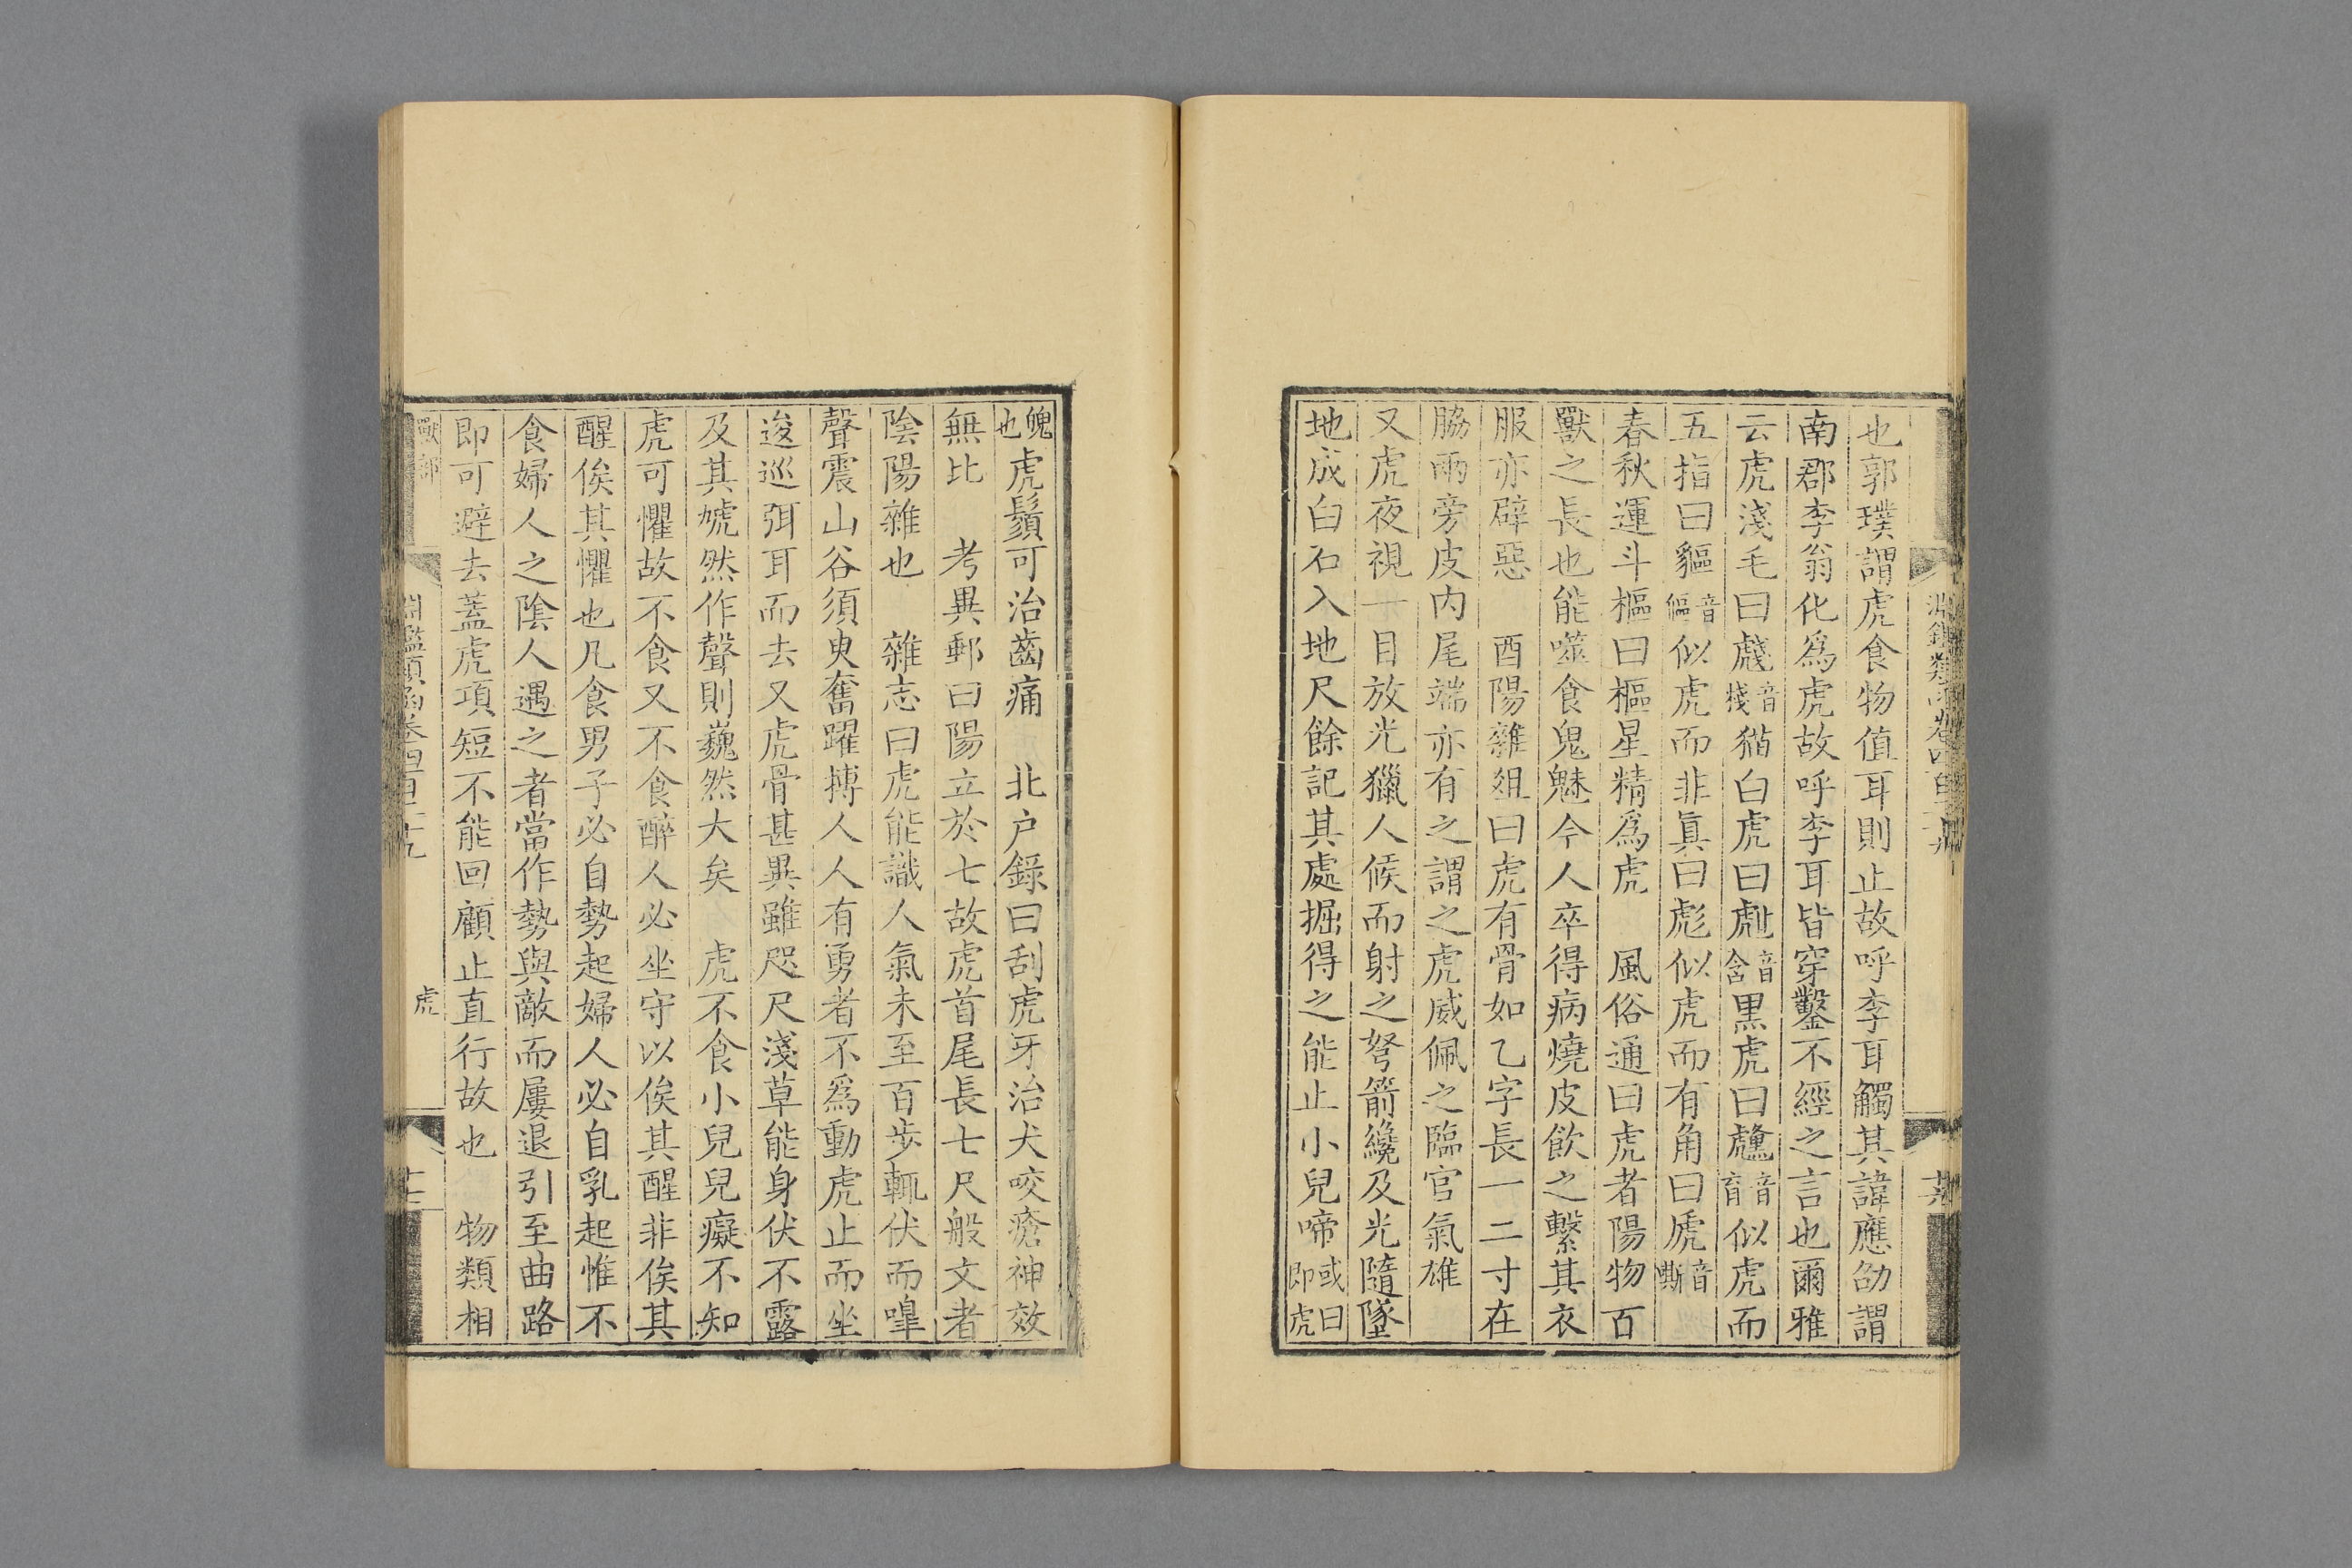 也郭璞謂虎食物值耳則止故呼李耳觸其諱應劭謂
南郡李翁化爲虎故呼李耳皆穿鑿不經之言也爾雅
云虎淺毛曰虥音棧猫白虎曰甝音含黑虎曰虪音育似虎而
五指曰貙音傴似虎而非眞曰彪似虎而有角曰虒音嘶
春秋運斗樞曰樞星精爲虎　風俗通曰虎者陽物百
獸之長也能噬食鬼魅今人卒得病燒皮飲之繫其衣
服亦辟惡　酉陽雜俎曰虎有骨如乙字長一二寸在
脇兩旁皮內尾端亦有之謂之虎威佩之臨官氣雄
又虎夜視一目放光獵人候而射之弩箭纔及光隨墜
地成白石入地尺餘記其處掘得之能止小兒啼或曰即虎
魄也虎鬚可治齒痛　北户錄曰刮虎牙治犬咬瘡神效
無比　考異郵曰陽立於七故虎首尾長七尺般文者
陰陽雜也　雜志曰虎能識人氣未至百步輒伏而嘷
聲震山谷須臾奮躍搏人人有勇者不爲動虎止而坐
逡巡弭耳而去又虎骨甚異雖咫尺淺草能身伏不露
及其虓然作聲則巍然大矣　虎不食小兒兒癡不知
虎可懼故不食又不食醉人必坐守以俟其醒非俟其
醒俟其懼也凡食男子必自勢起婦人必自乳起惟不
食婦人之陰人遇之者當作勢與敵而屢退引至曲路
即可避去蓋虎項短不能回顧止直行故也　物類相
獸部
淵鑑類函卷四百二十九
虎